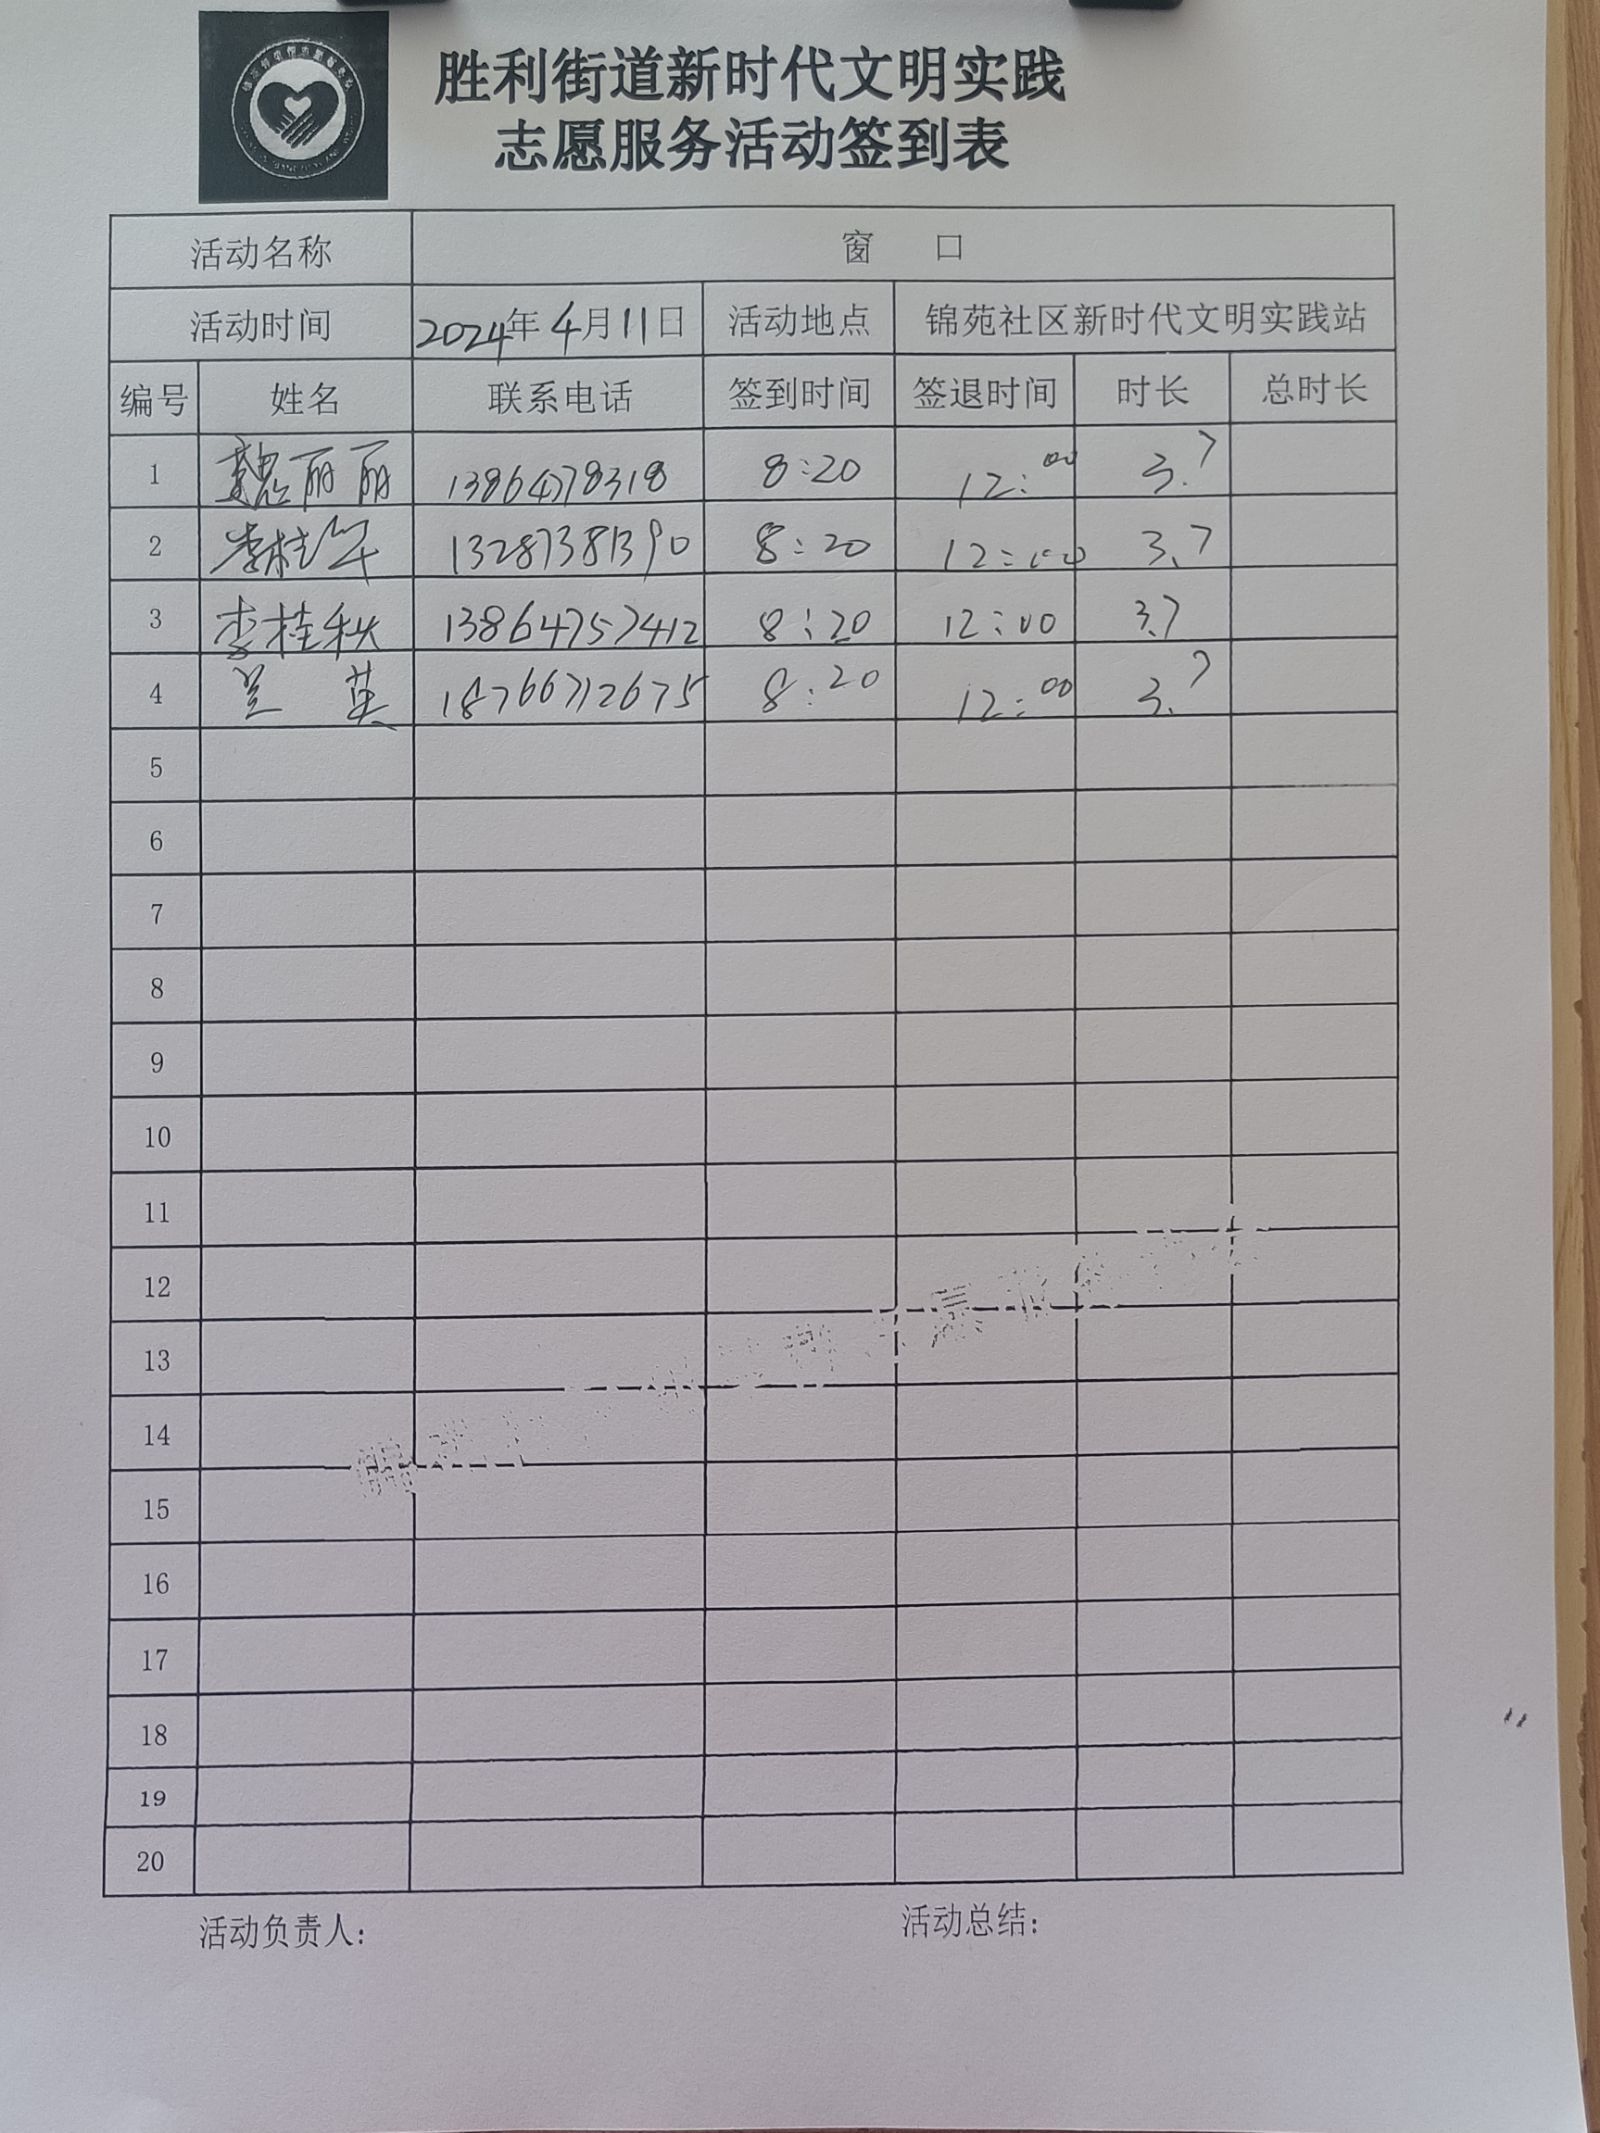 胜利街道新时代文明实践
志愿服务活动签到表
活动名称 窗 口
活动时间 2024年4月11日 活动地点 锦苑社区新时代文明实践站
编号 姓名 联系电话 签到时间 签退时间 时长 总时长
1 魏丽丽 13864778318 8:20 12:00 3.7
2 李桂 13287381390 8:20 12:00 3.7
3 李桂秋 13864757412 8:20 12:00 3.7
4 兰 英 18766712675 8:20 12:00 3.7
5
6
7
8
9
10
11
12
13
14
15
16
17
18
19
20
活动负责人: 活动总结: